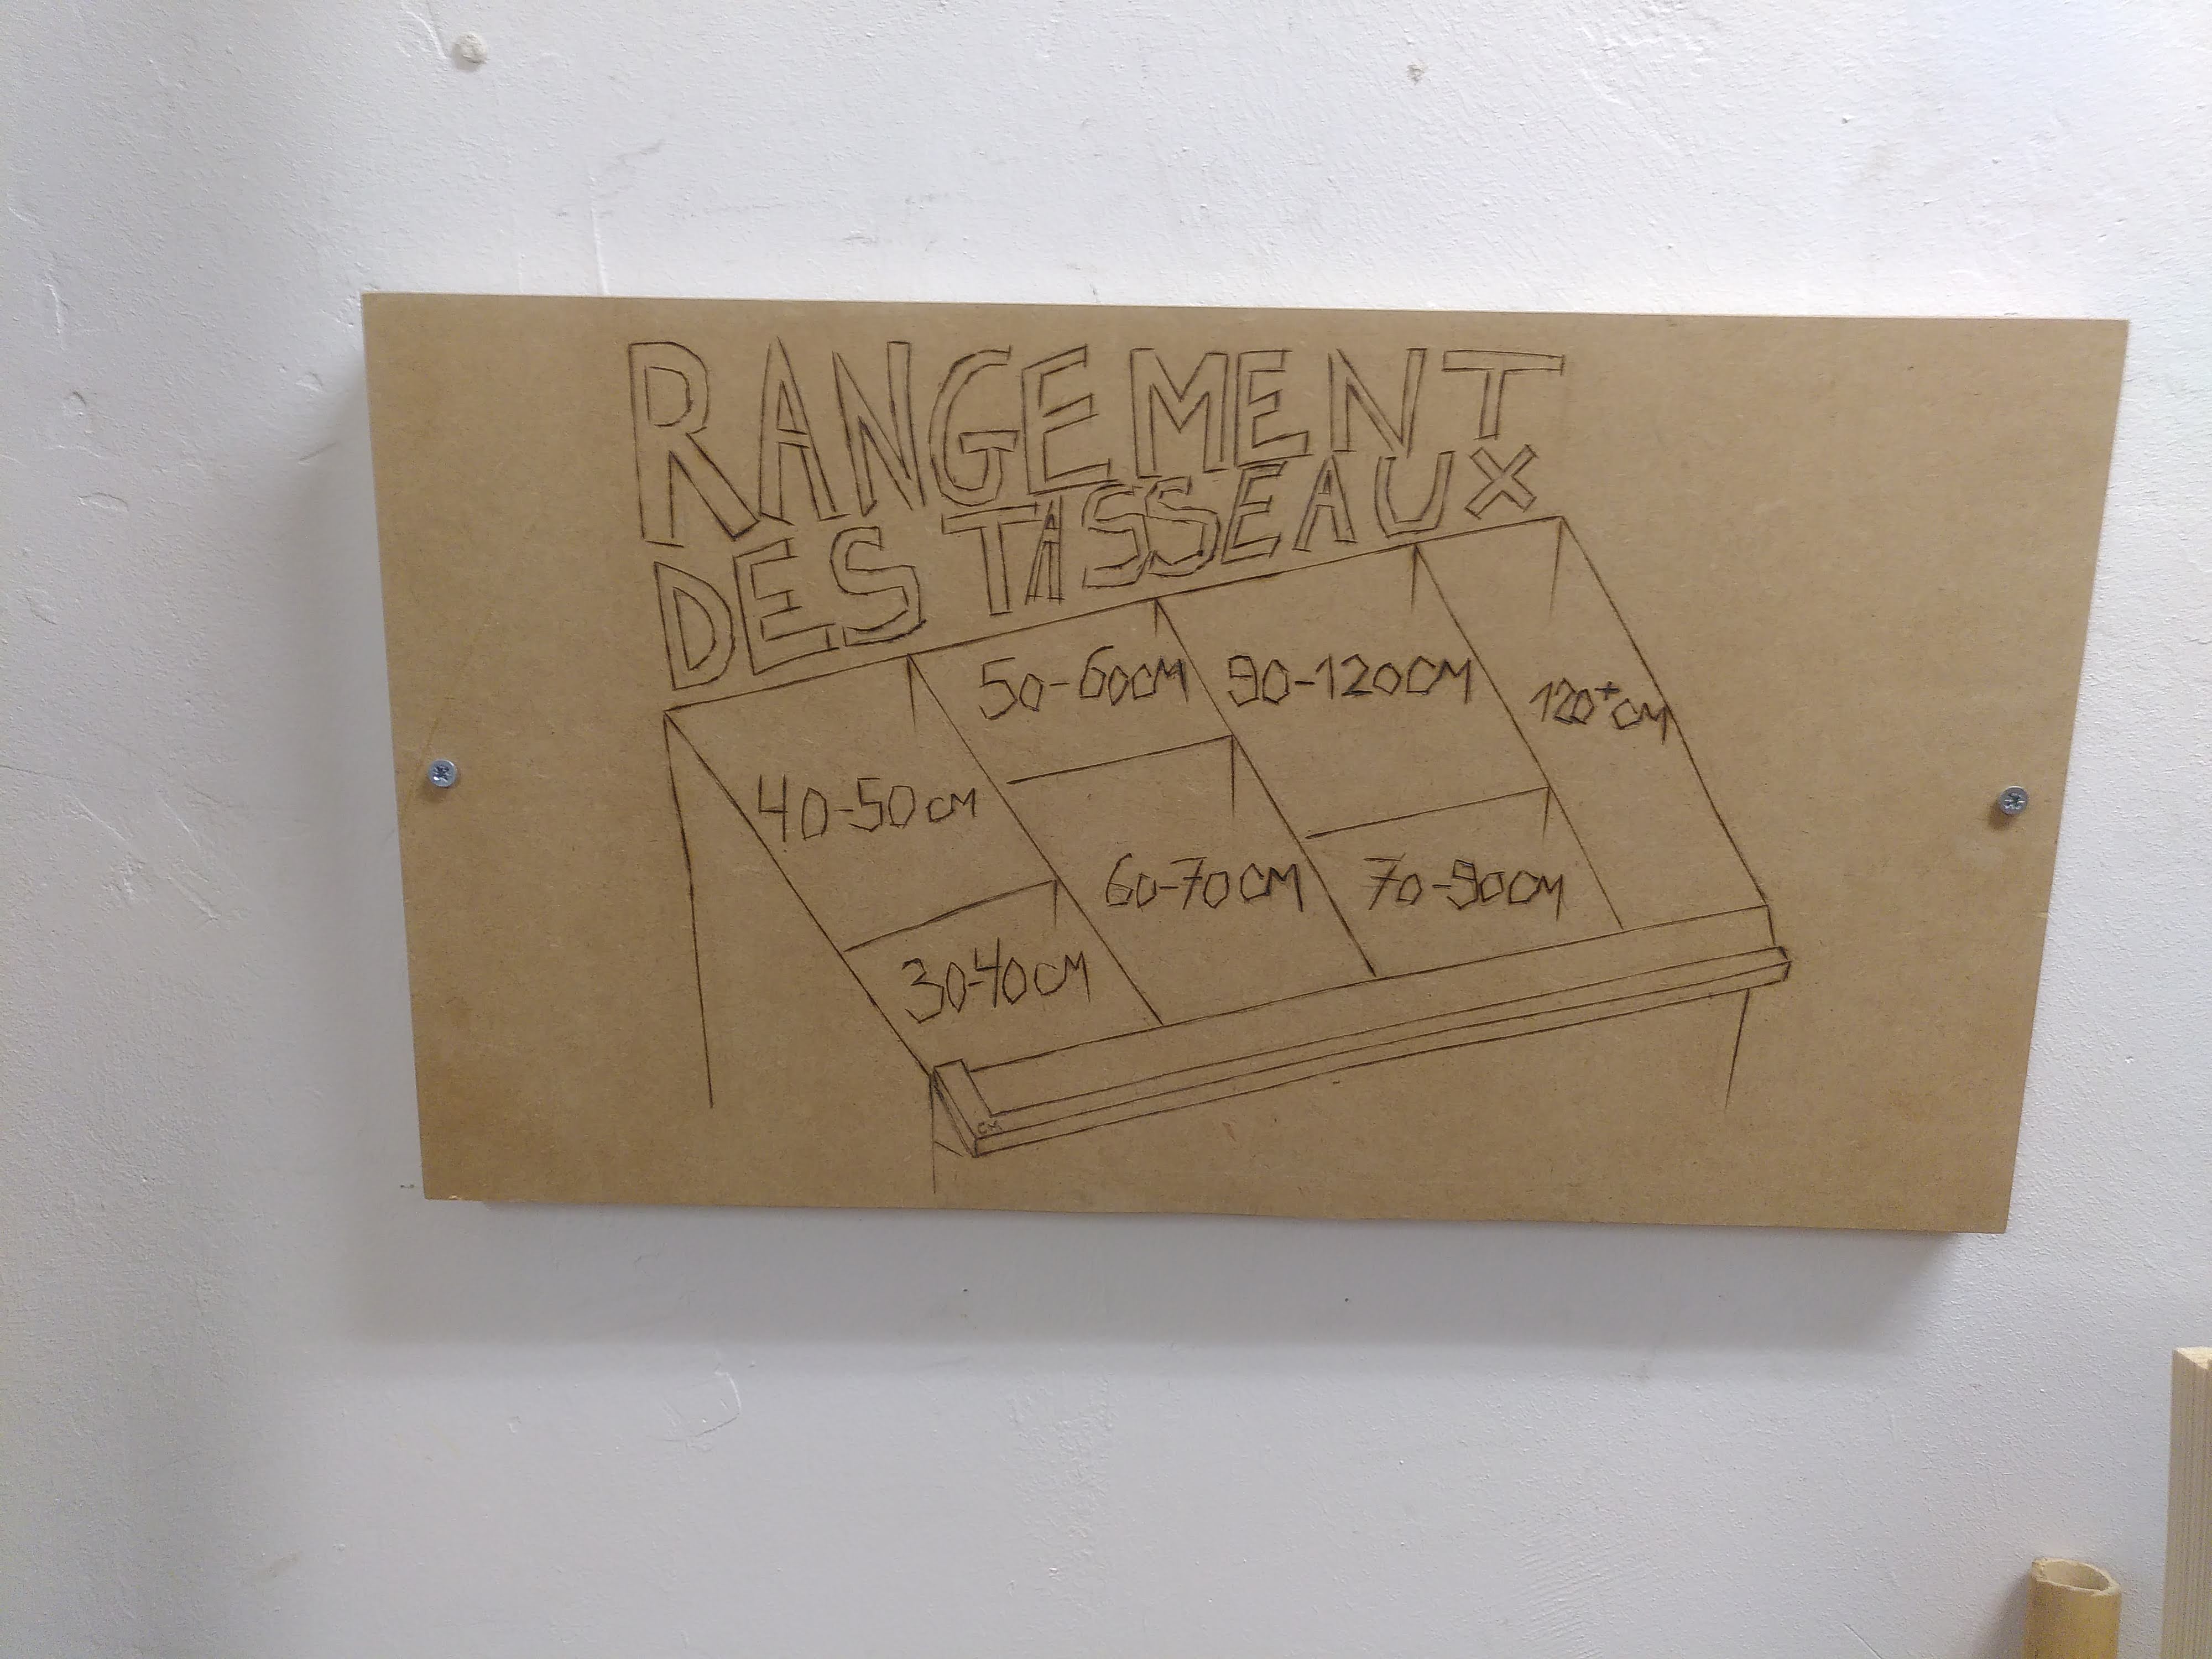 RANGEMENT
DES TASSEAUX
50-60CM
90-120CM
120+CM
40-50CM
60-70CM
70-90CM
30-40CM
CM